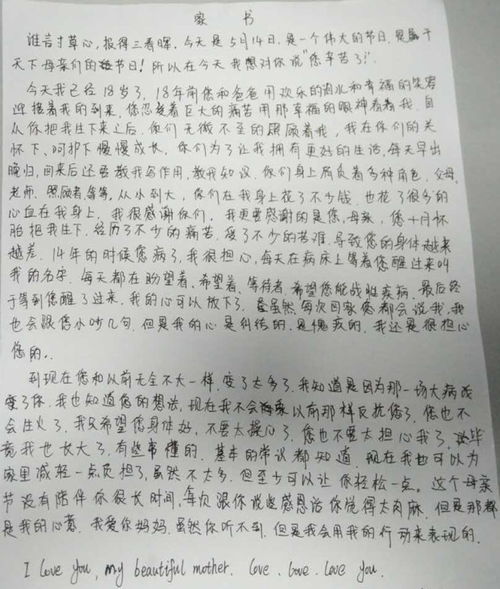 家 书
谁言寸草心,报得三春晖。今天是5月14日,是一个伟大的节日,是属于
天下母亲们的节日!所以在今天我想对你说"您辛苦了!"
今天我已经18岁了,18年前您和爸爸用欢乐的泪水和幸福的笑容
迎接着我的到来,您忍受着巨大的痛苦用那幸福的眼神看着我,自
从你把我生下来之后,你们无微不至的照顾着我,我在你们的关
怀下、呵护下慢慢成长,你们为了让我拥有更好的生活,每天早出
晚归,回来后还要教我写作用,教我知识,你们身上肩负着多种角色,父母,
老师,照顾者,等等,从小到大,你们在我身上花了不少钱,也花了很多的
心血在我身上,我很感谢你们,我更要感谢的是您,母亲,您十月怀
胎把我生下,经历了不少的痛苦,受了不少的苦难,导致您的身体越来
越差,14年的时候您病了,我很担心,每天在病床上等着您醒过来叫
我的名字,每天都在盼望着、希望着、等待着,希望您能战胜疾病,最后终
于等到您醒了过来,我的心可以放下了,虽然每次回家您都会说我,我
也会跟您小吵几句,但是我的心是纠结的,是愧疚的,我还是很担心
您的。
到现在您和以前完全不太一样,变了太多了,我知道是因为那一场大病改
变了你,我也知道您的想法,现在我不会像以前那样反抗您了,您也不
会生火了,我只希望您身体好,不要太操心了,您也不要太担心我了,毕
竟我也长大了,有些事懂的,基本的常识都知道,现在我也可以为
家里减轻一点负担了,虽然不太多,但至少可以让你轻松一点。这个母亲
节没有陪伴你很长时间,每次跟你说些感恩话你觉得太肉麻,但是那都
是我的心意,我爱你妈妈,虽然你听不到,但是我会用我的行动来表现的。
I love you, my beautiful mother. love. love. love you.